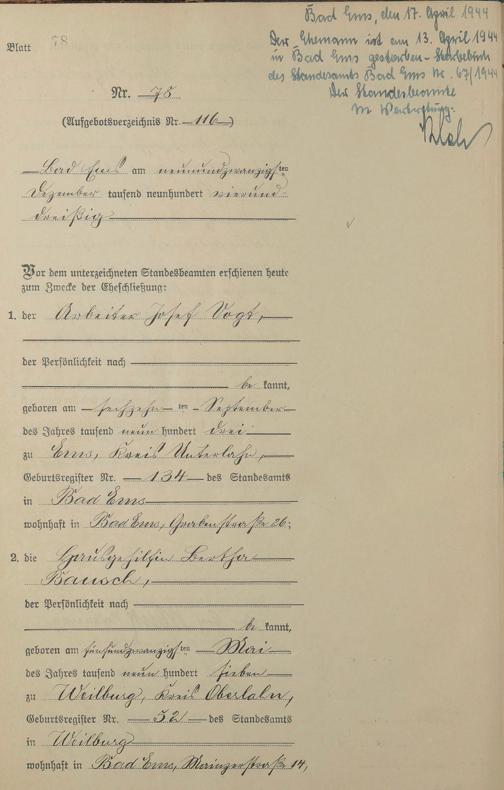 Bad Ems, den 17. April 1944
Der Ehemann ist am 13. April 1944
in Bad Ems gestorben - Sterbebuch
des Standesamts Bad Ems Nr. 67/1944
Der Standesbeamte
In Vertretung:
Blatt 78
Nr. 75
(Aufgebotsverzeichnis Nr. 116)
Bad Ems am neunundzwanzigsten
Dezember tausend neunhundert vierund-
dreißig
Vor dem unterzeichneten Standesbeamten erschienen heute
zum Zwecke der Eheschließung:
1. der Arbeiter Josef Vogt,
der Persönlichkeit nach
be kannt,
geboren am sechzehn ten September
des Jahres tausend neun hundert drei
zu Ems, Kreis Unterlahn,
Geburtsregister Nr. 134 des Standesamts
in Bad Ems
wohnhaft in Bad Ems, Grabenstraße 26;
2. die Hausgehilfin Bertha
Bausch,
der Persönlichkeit nach
be kannt,
geboren am fünfundzwanzigsten Mai
des Jahres tausend neun hundert sieben
zu Weilburg, Kreis Oberlahn,
Geburtsregister Nr. 52 des Standesamts
in Weilburg
wohnhaft in Bad Ems, Mainzerstraße 14,